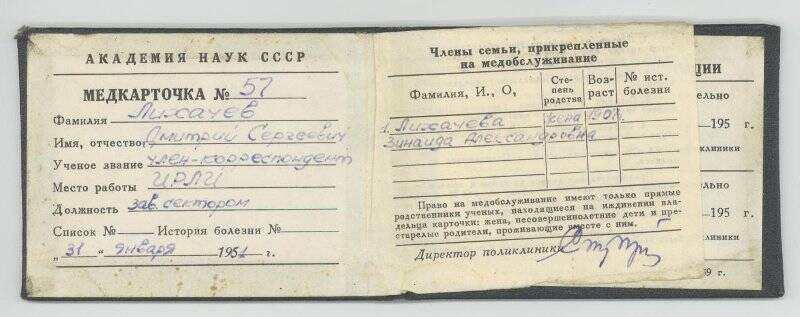 АКАДЕМИЯ НАУК СССР
МЕДКАРТОЧКА № 57
Фамилия Лихачев
Имя, отчество Дмитрий Сергеевич
Ученое звание член-корреспондент
Место работы ИРЛИ
Должность зав. сектором
Список № — История болезни № —
„ 31 " января 1951 г.
Члены семьи, прикрепленные
на медобслуживание
Фамилия, И., О, Сте-пень родства Воз-раст № ист. болезни
1. Лихачева жена 1907
Зинаида Александровна
Право на медобслуживание имеют только прямые
родственники ученых, находящиеся на иждивении вла-
дельца карточки: жена, несовершеннолетние дети и пре-
старелые родители, проживающие вместе с ним.
Директор поликлиники
ЦИИ
ельно
-195 г.
клиники
ельно
-195 г.
клиники
59 г.